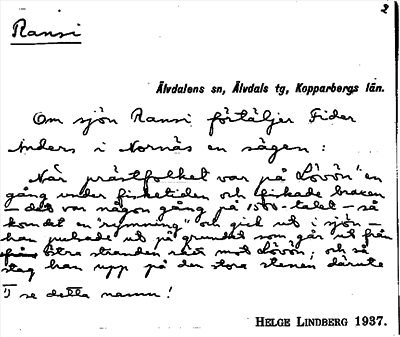 2
Ransi
Älvdalens sn, Älvdals tg, Kopparbergs län.
Om sjön Ransi förtäljer Fider
Anders i Nornäs en sägen:
När prästfolket var på Lövön¹⁾ en
gång under fisketiden och fiskade braxen
– det var någon gång på 1500-talet – så
kom det en "rymning" och gick ut i sjön –
han pulsade ut på grundet som går ut från
östra stranden rätt mot Lövön, och så
steg han upp på den stora stenen därute
1) se detta namn!
HELGE LINDBERG 1937.